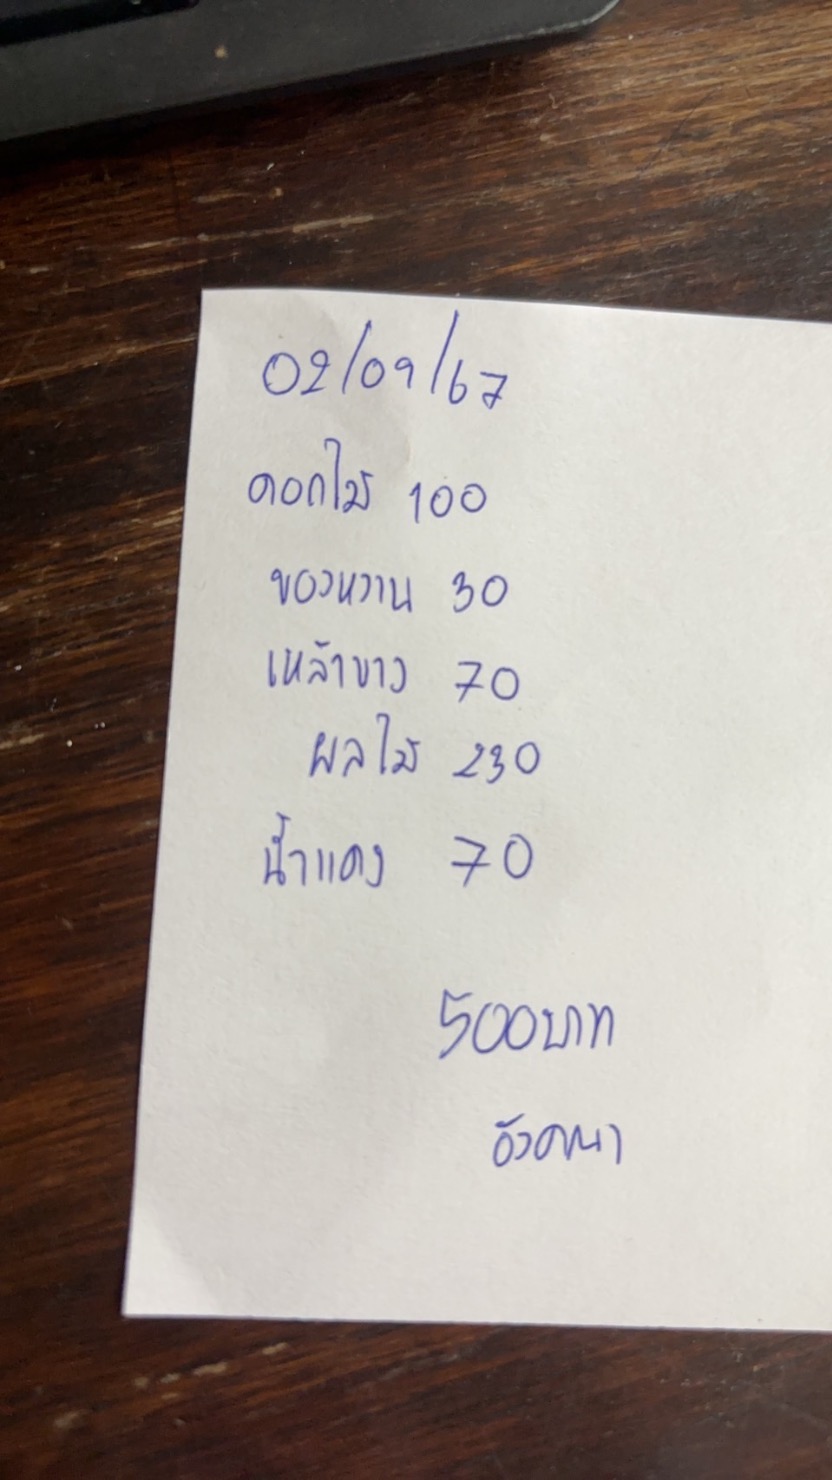 02/09/67
ดอกไม้ 100
ของหวาน 30
เหล้าขาว 70
ผลไม้ 230
น้ำแดง 70
500บาท
อังคณา